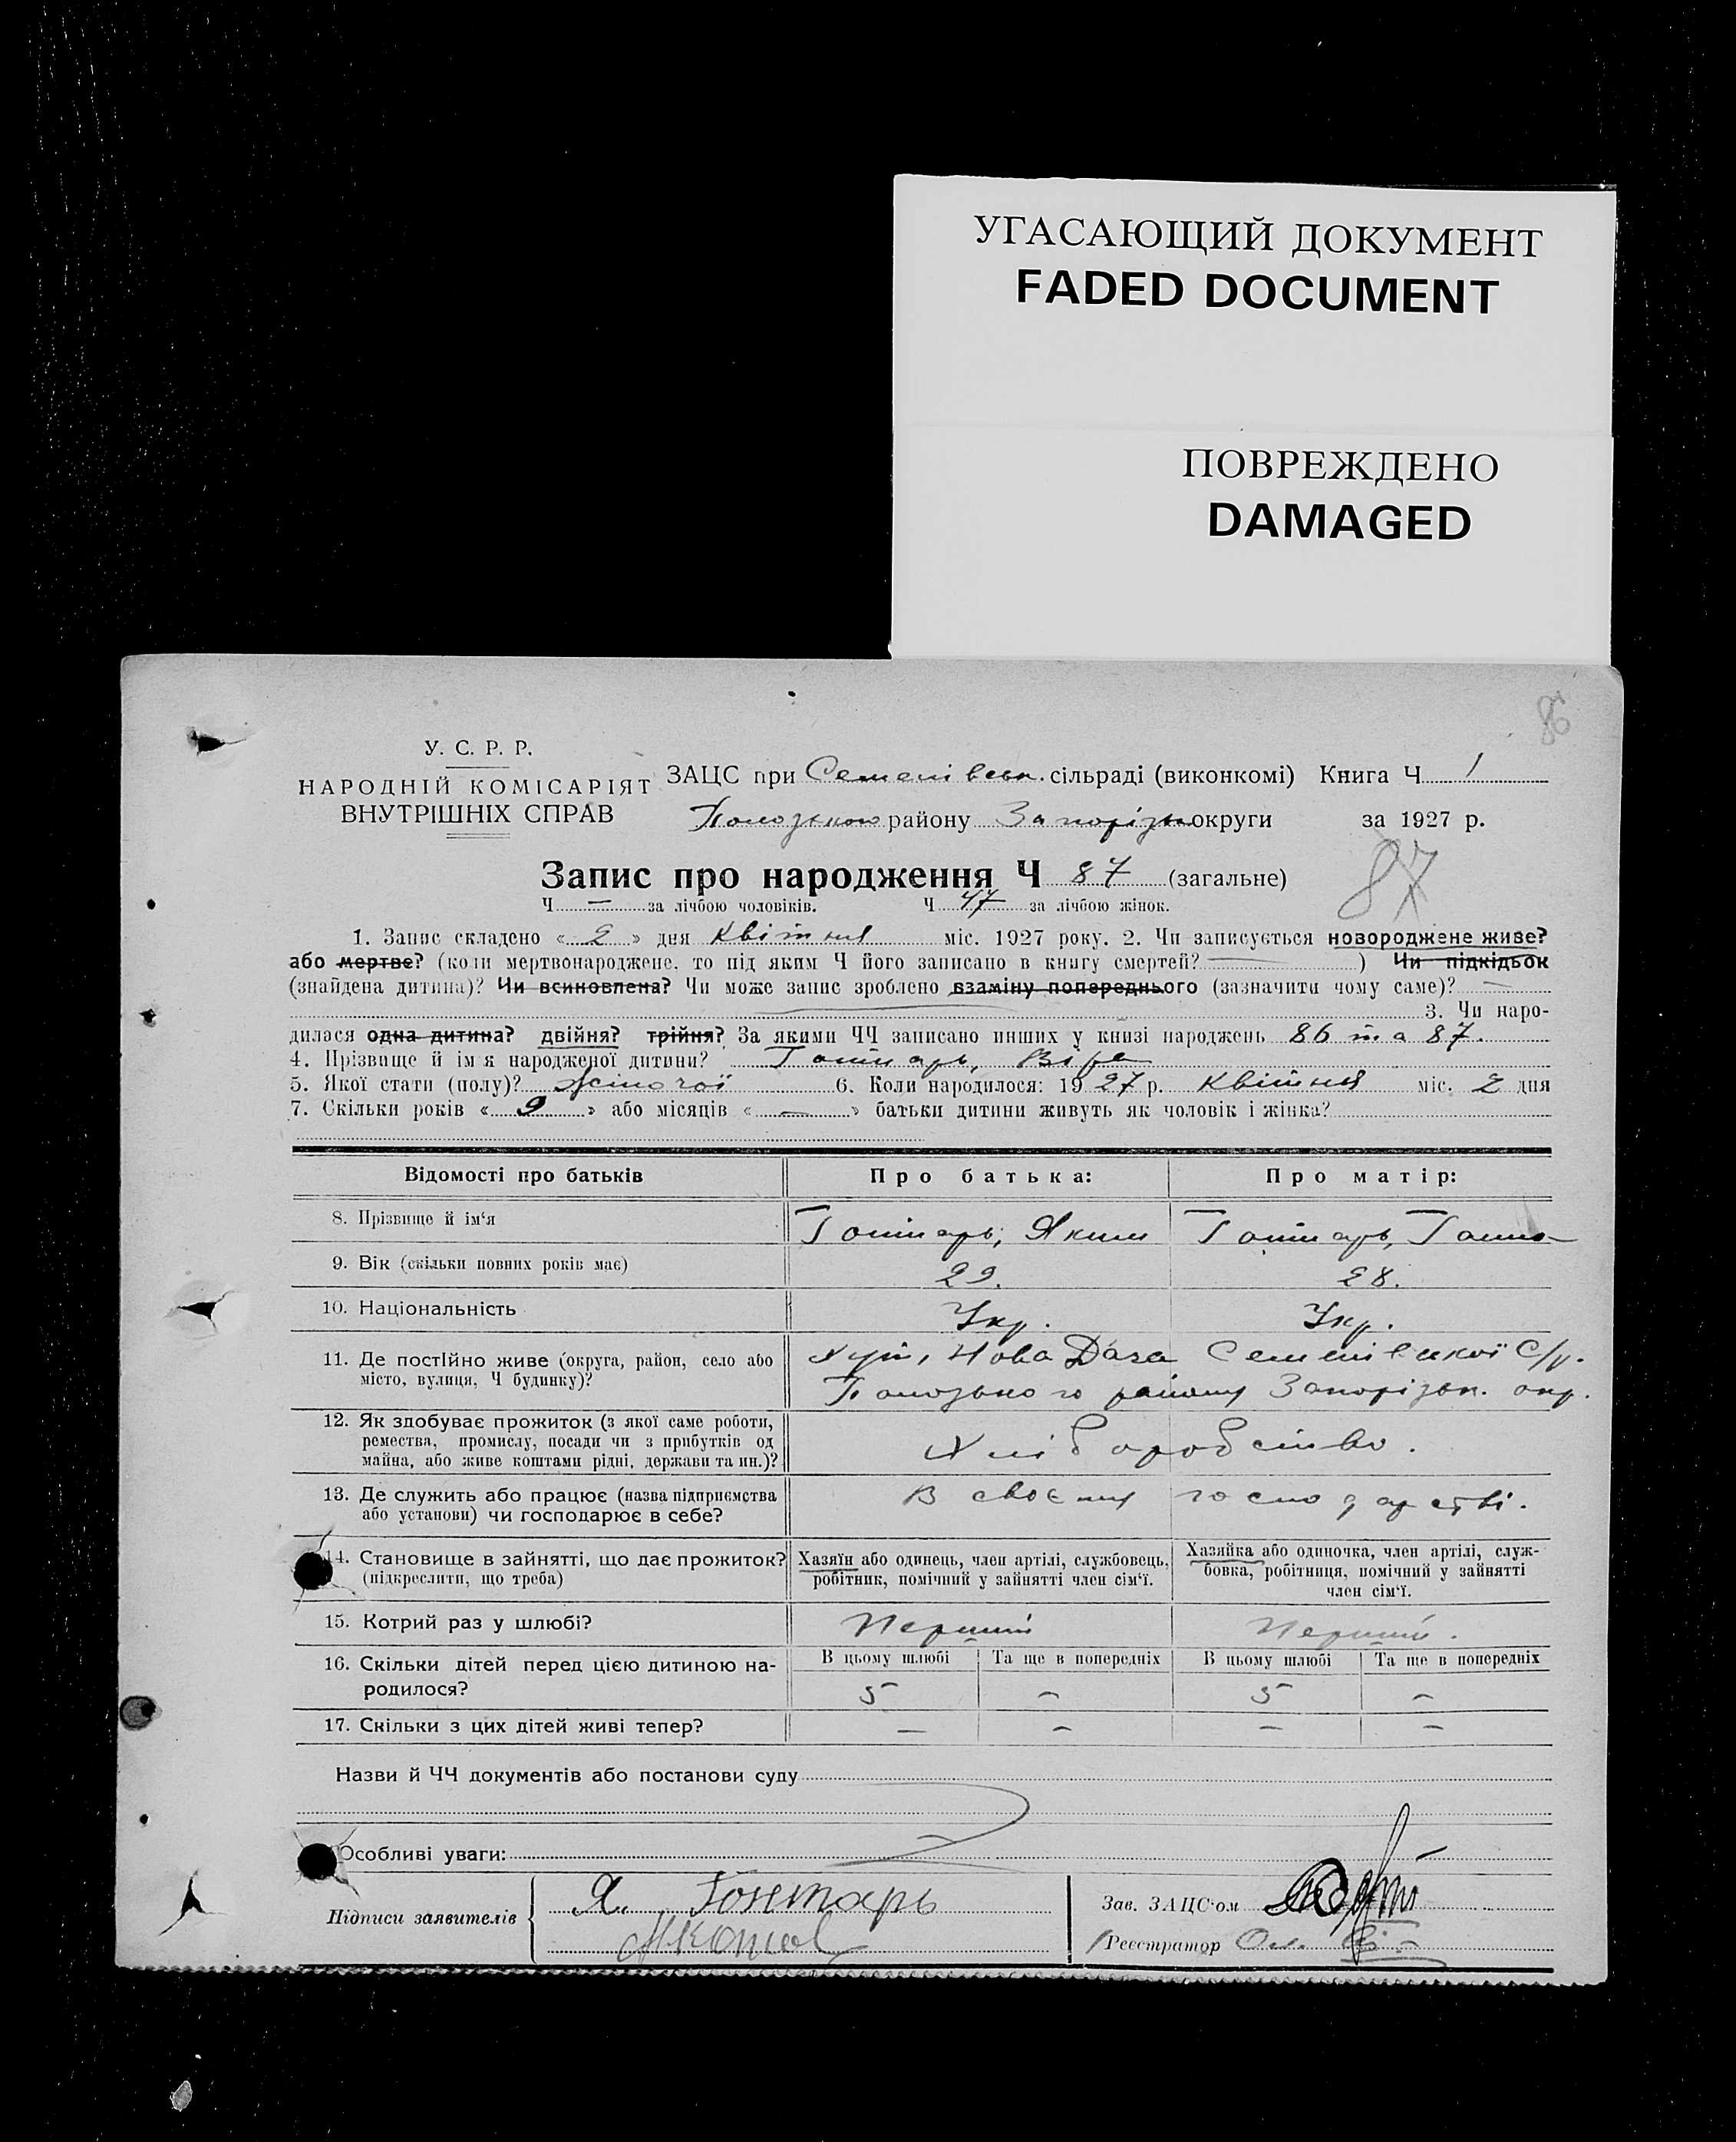 УГАСАЮЩИЙ ДОКУМЕНТ
FADED DOCUMENT
ПОВРЕЖДЕНО
DAMAGED
86
У. С. Р. Р.
НАРОДНІЙ КОМІСАРІЯТ
ВНУТРІШНІХ СПРАВ
ЗАЦС при Семенівськ. сільраді (виконкомі) Книга Ч 1
Пологського району Запорізьк округи за 1927 р.
87
Запис про народження Ч 87 (загальне)
Ч — за лічбою чоловіків. Ч 47 за лічбою жінок.
1. Запис складено « 2 » дня Квітня міс. 1927 року. 2. Чи записується новороджене живе?
або мертве? (коли мертвонароджене, то під яким Ч його записано в книгу смертей? —) Чи підкідьок
(знайдена дитина)? Чи всиновлена? Чи може запис зроблено взаміну попереднього (зазначити чому саме)? —
3. Чи наро-
дилася одна дитина? двійня? трійня? За якими ЧЧ записано инших у книзі народжень 86 та 87.
4. Прізвище й ім'я народженої дитини? Гонтарь, Віра
5. Якої стати (полу)? Жіночої 6. Коли народилося: 1927 р. Квітня міс. 2 дня
7. Скільки років « 9 » або місяців « — » батьки дитини живуть як чоловік і жінка?
Відомості про батьків Про батька: Про матір:
8. Прізвище й ім'я Гонтарь, Яким Гонтарь, Ганна
9. Вік (скільки повних років має) 29. 28.
10. Національність Укр. Укр.
11. Де постійно живе (округа, район, село або
місто, вулиця, Ч будинку)?
Хут. Нова Дача Семенівської С/р.
Пологського району Запорізьк. окр.
12. Як здобуває прожиток (з якої саме роботи,
ремества, промислу, посади чи з прибутків од
майна, або живе коштами рідні, держави та ин.)?
Хліборобство.
13. Де служить або працює (назва підприємства
або установи) чи господарює в себе?
В своєму господарстві.
14. Становище в зайнятті, що дає прожиток?
(підкреслити, що треба)
Хазяїн або одинець, член артілі, службовець,
робітник, помічний у зайнятті член сім'ї.
Хазяйка або одиночка, член артілі, служ-
бовка, робітниця, помічний у зайнятті
член сім'ї.
15. Котрий раз у шлюбі? Перший Перший.
16. Скільки дітей перед цією дитиною на-
родилося?
В цьому шлюбі Та ще в попередніх В цьому шлюбі Та ще в попередніх
5 — 5 —
17. Скільки з цих дітей живі тепер? — — — —
Назви й ЧЧ документів або постанови суду
Особливі уваги:
Підписи заявителів Я. Гонтарь
Зав. ЗАЦС'ом
Реєстратор